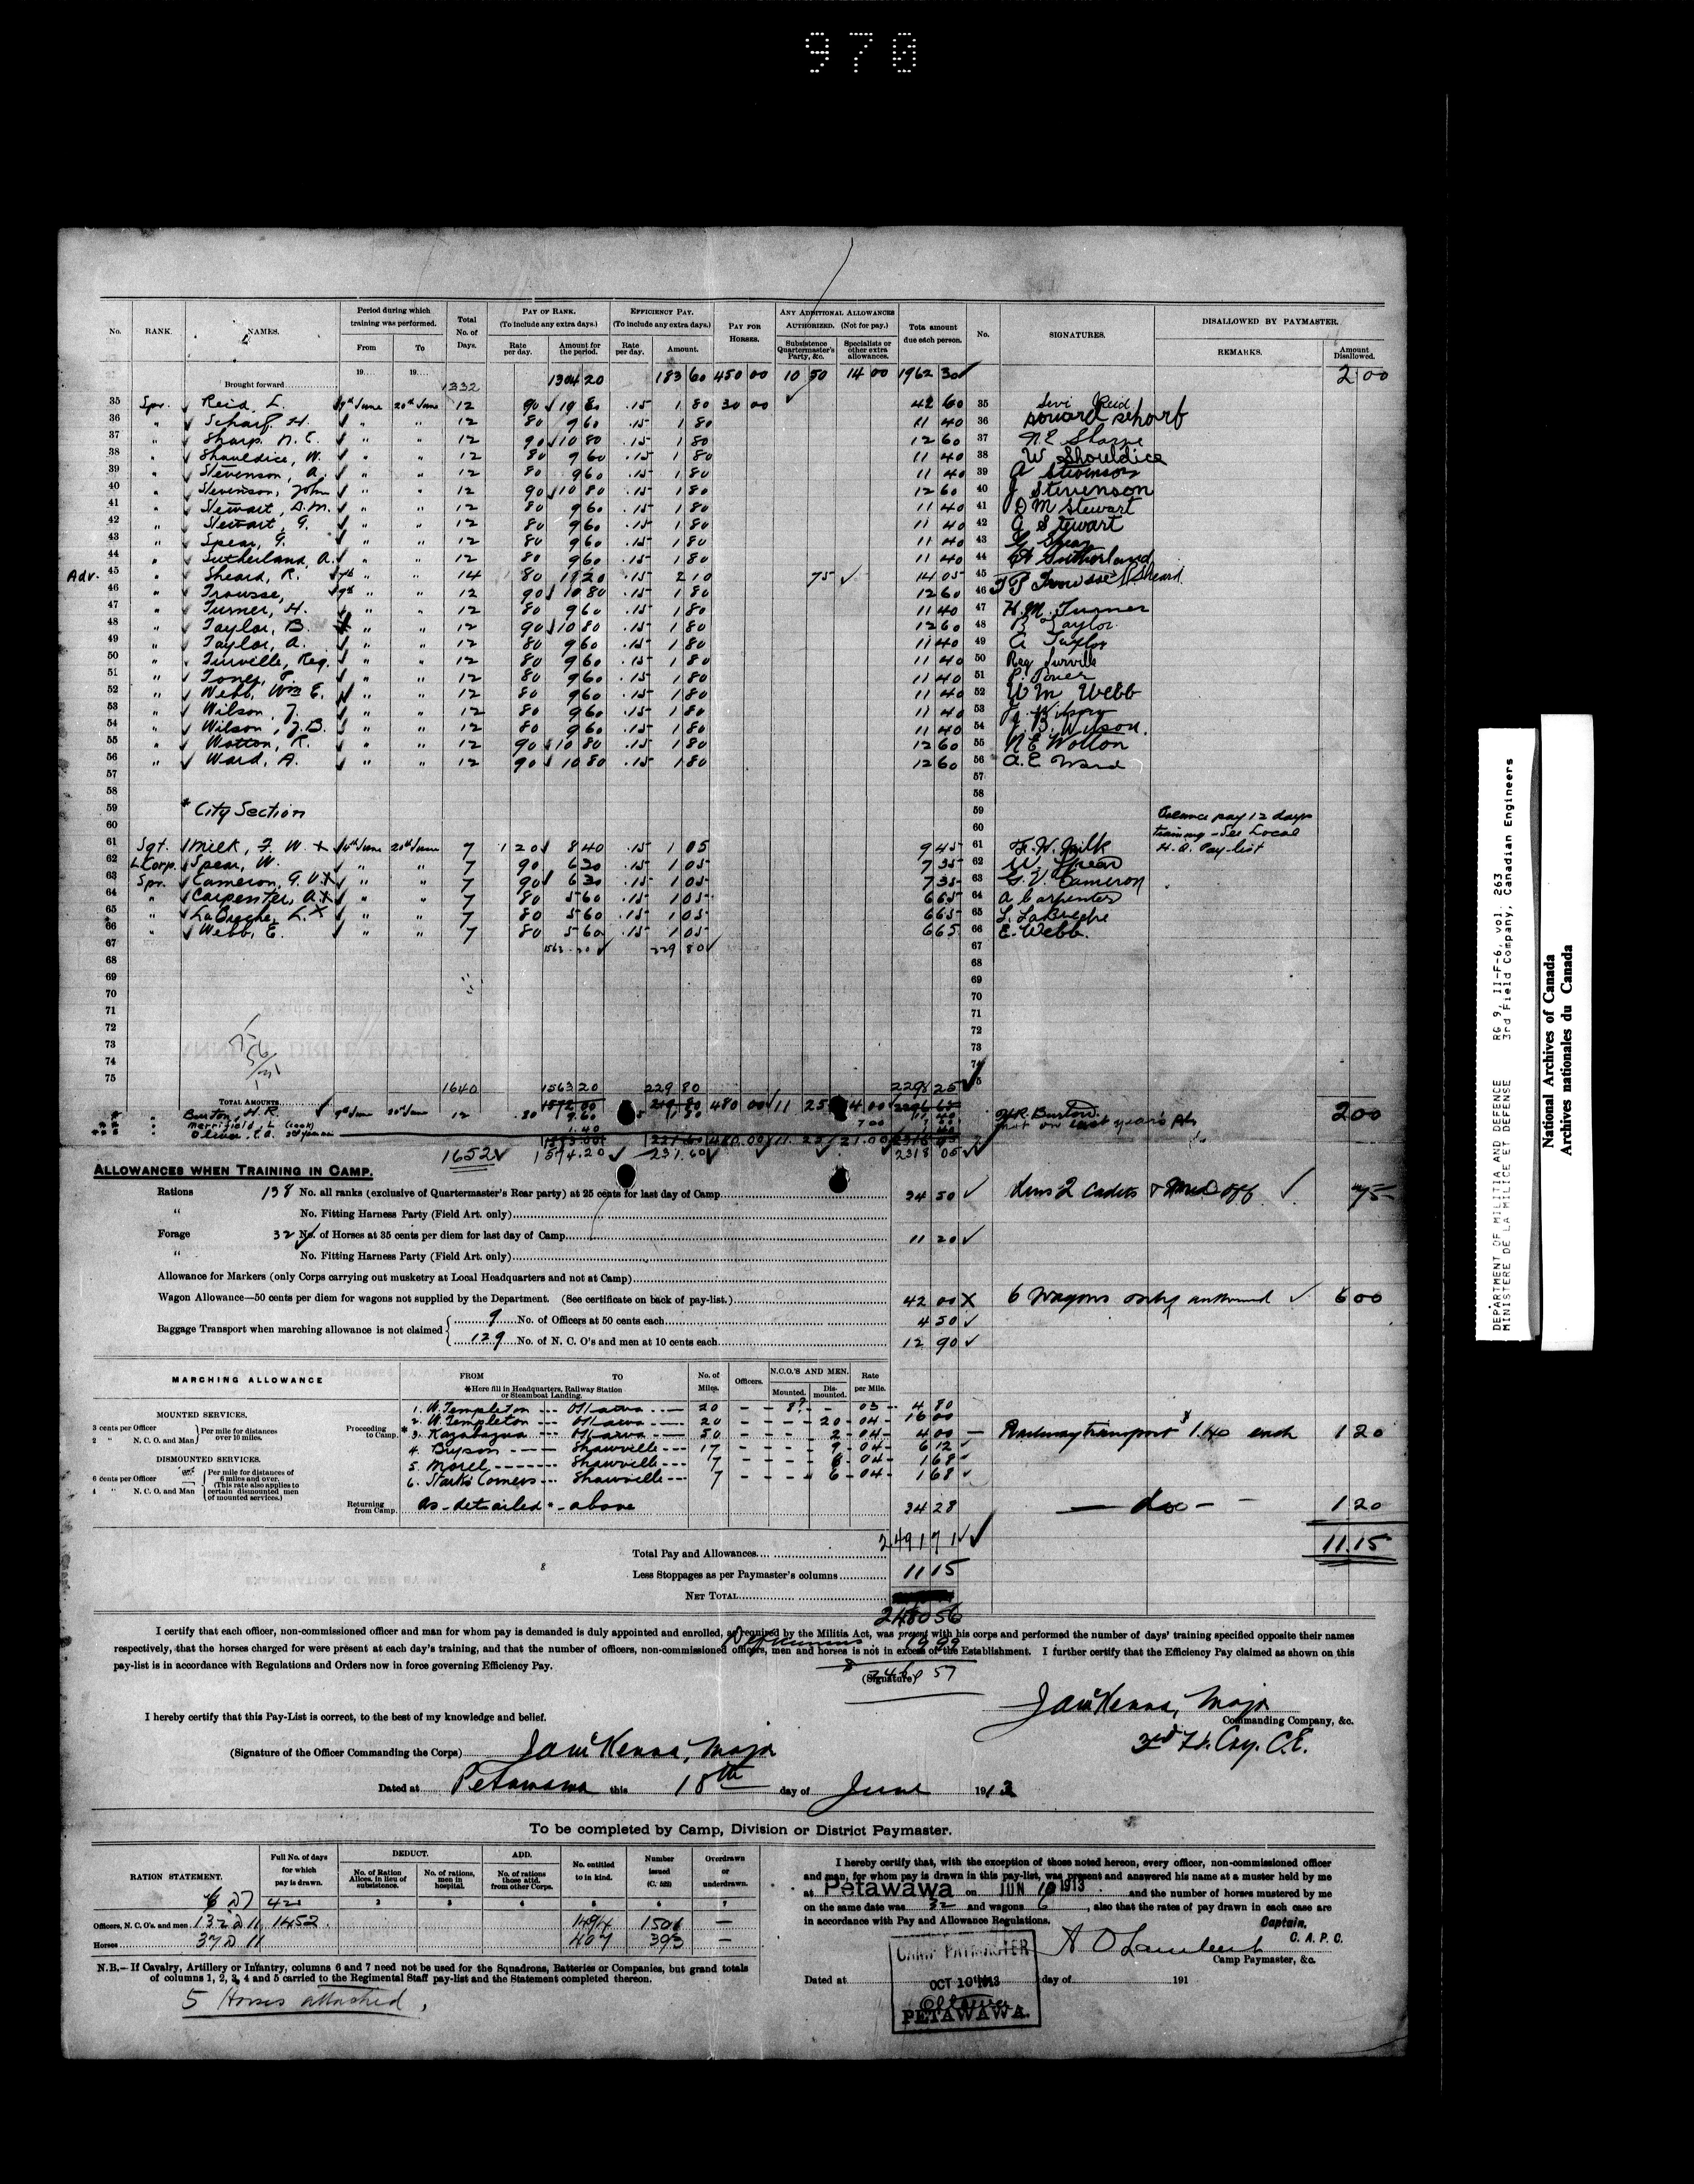 970
No. RANK. NAMES. Period during which training was performed. From To Total No. of Days. PAY OF RANK. (To include any extra days.) Rate per day. Amount for the period. EFFICIENCY PAY. (To include any extra days.) Rate per day. Amount. PAY FOR HORSES. ANY ADDITIONAL ALLOWANCES AUTHORIZED. (Not for pay.) Subsistence Quartermaster's Party, &c. Specialists or other extra allowances. Tota amount due each person. No. SIGNATURES. DISALLOWED BY PAYMASTER. REMARKS. Amount Disallowed.
19.... 19....
Brought forward 1332 1304 20 183 60 450 00 10 50 14 00 1962 30 2 00
35 Spr. Reid, L. 9th June 20th June 12 90 10 80 .15 1 80 30 00 42 60 35 Levi Reid
36 " Scharf, H. " " 12 80 9 60 .15 1 80 11 40 36
37 " Sharp, N.E. " " 12 90 10 80 .15 1 80 12 60 37 N.E. Sharpe
38 " Shouldice, W. " " 12 80 9 60 .15 1 80 11 40 38 W Shouldice
39 " Stevenson, A. " " 12 80 9 60 .15 1 80 11 40 39 A Stevenson
40 " Stevenson, John " " 12 90 10 80 .15 1 80 12 60 40 J Stevenson
41 " Stewart, D.M. " " 12 80 9 60 .15 1 80 11 40 41 D M Stewart
42 " Stewart, G. " " 12 80 9 60 .15 1 80 11 40 42 G Stewart
43 " Spear, G. " " 12 80 9 60 .15 1 80 11 40 43 G Spear
44 " Sutherland, A. " " 12 80 9 60 .15 1 80 11 40 44 A Sutherland
Adv. 45 " Sheard, R. 7th " " 14 80 11 20 .15 2 10 75 14 05 45 R. Sheard
46 " Trousse, 9th " " 12 90 10 80 .15 1 80 12 60 46 T P Trousse
47 " Turner, H. " " 12 80 9 60 .15 1 80 11 40 47 H.M. Turner
48 " Taylor, B. " " 12 90 10 80 .15 1 80 12 60 48 B Taylor
49 " Taylor, A. " " 12 80 9 60 .15 1 80 11 40 49 A Taylor
50 " Turville, Reg. " " 12 80 9 60 .15 1 80 11 40 50 Reg Turville
51 " Toner, P. " " 12 80 9 60 .15 1 80 11 40 51 P. Toner
52 " Webb, Wm E. " " 12 80 9 60 .15 1 80 11 40 52 W m Webb
53 " Wilson, J. " " 12 80 9 60 .15 1 80 11 40 53 J. Wilson
54 " Wilson, J.B. " " 12 80 9 60 .15 1 80 11 40 54 J. B. Wilson.
55 " Wotton, R. " " 12 90 10 80 .15 1 80 12 60 55 R E Wotton
56 " Ward, A. " " 12 90 10 80 .15 1 80 12 60 56 A.E Ward
57 57
58 58
59 * City Section 59 Balance pay 12 days
60 60 training - See Local
61 Sgt. Milk, F. W. x 14th June 20th June 7 1 20 8 40 .15 1 05 9 45 61 F.W. Milk H.Q. Pay list
62 L Corp. Spear, W. " " 7 90 6 30 .15 1 05 7 35 62 W. Spear
63 Spr. Cameron, G.V. x " " 7 90 6 30 .15 1 05 7 35 63 G. V. Cameron
64 " Carpenter, A. x " " 7 80 5 60 .15 1 05 6 65 64 A Carpenter
65 " x " " 7 80 5 60 .15 1 05 6 65 65
66 " Webb, E. " " 7 80 5 60 .15 1 05 6 65 66 E. Webb.
67 1563 20 229 80 67
68 68
69 69
70 70
71 71
72 72
73 73
74 74
75 1640 1563 20 229 80 2298 25 75
TOTAL AMOUNTS 480 00 11 25 14 00 2 00
Burton, H.R. 9th June 20th June 12 .80 9.60 1 80 11 40 H.R. Burton
Merrifield, L (cook) 1.40 7 00 not on last year's pls
1652 1574.20 231.60 480.00 11.25 21.00 2318 05
ALLOWANCES WHEN TRAINING IN CAMP.
Rations 138 No. all ranks (exclusive of Quartermaster's Rear party) at 25 cents for last day of Camp 34 50 less 2 Cadets & Med Off 75
" No. Fitting Harness Party (Field Art. only)
Forage 32 No. of Horses at 35 cents per diem for last day of Camp 11 20
" No. Fitting Harness Party (Field Art. only)
Allowance for Markers (only Corps carrying out musketry at Local Headquarters and not at Camp)
Wagon Allowance—50 cents per diem for wagons not supplied by the Department. (See certificate on back of pay-list.) 42 00 X 6 Wagons only 6 00
Baggage Transport when marching allowance is not claimed 9 No. of Officers at 50 cents each 4 50
129 No. of N. C. O's and men at 10 cents each 12 90
MARCHING ALLOWANCE FROM TO *Here fill in Headquarters, Railway Station or Steamboat Landing. No. of Miles. Officers. N.C.O.'S AND MEN. Mounted. Dis-mounted. Rate per Mile.
MOUNTED SERVICES.
3 cents per Officer
2 " N. C. O. and Man
Per mile for distances over 10 miles.
DISMOUNTED SERVICES.
6 cents per Officer
4 " N. C. O. and Man
Per mile for distances of 6 miles and over. (This rate also applies to certain dismounted men of mounted services.)
Proceeding to Camp.
1. W. Templeton --- Ottawa 20 - 8? - 03 4 80
2. W. Templeton --- Ottawa 20 - - 20 - 04 16 00
* 3. Kazabazua --- Ottawa 50 - - 2 - 04 4 00 Railway transport 1.40 each 1 20
4. Bryson --- Shawville 17 - - 9 - 04 6 12
5. Morel --- Shawville 7 - - 6 - 04 1 68
6. Starks Corners --- Shawville 7 - - 6 - 04 1 68
Returning from Camp. As - detailed - above 34 28 - do - 1 20
Total Pay and Allowances 2491 71 11.15
Less Stoppages as per Paymaster's columns 11 15
NET TOTAL
2480 56
I certify that each officer, non-commissioned officer and man for whom pay is demanded is duly appointed and enrolled, as required by the Militia Act, was present with his corps and performed the number of days' training specified opposite their names
respectively, that the horses charged for were present at each day's training, and that the number of officers, non-commissioned officers, men and horses is not in excess of the Establishment. I further certify that the Efficiency Pay claimed as shown on this
pay-list is in accordance with Regulations and Orders now in force governing Efficiency Pay.
19 99
(Signature)
2460 57
Major
Commanding Company, &c.
3rd Fd. Coy. C.E.
I hereby certify that this Pay-List is correct, to the best of my knowledge and belief.
(Signature of the Officer Commanding the Corps) Major
Dated at Petawawa this 18th day of June 1913
To be completed by Camp, Division or District Paymaster.
RATION STATEMENT. Full No. of days for which pay is drawn. DEDUCT. No. of Ration Allces. in lieu of subsistence. No. of rations, men in hospital. ADD. No. of rations those attd. from other Corps. No. entitled to in kind. Number issued (C. 522) Overdrawn or underdrawn.
6 @ 7 42 2 3 4 5 6 7
Officers, N. C. O's. and men 132 @ 11 1452 1494 1501 —
Horses 37 @ 11 407 393 —
N.B.—If Cavalry, Artillery or Infantry, columns 6 and 7 need not be used for the Squadrons, Batteries or Companies, but grand totals
of columns 1, 2, 3, 4 and 5 carried to the Regimental Staff pay-list and the Statement completed thereon.
5 Horses attached.
I hereby certify that, with the exception of those noted hereon, every officer, non-commissioned officer
and man, for whom pay is drawn in this pay-list, was present and answered his name at a muster held by me
at Petawawa on JUN 16 1913 and the number of horses mustered by me
on the same date was 32 and wagons 6, also that the rates of pay drawn in each case are
in accordance with Pay and Allowance Regulations.
Captain,
C. A. P. C.
A O Lambert
Camp Paymaster, &c.
Dated at day of 191
CAMP PAYMASTER
OCT 10 1913
Ottawa
PETAWAWA.
DEPARTMENT OF MILITIA AND DEFENCE RG 9, II-F-6, vol. 263
MINISTERE DE LA MILICE ET DEFENSE 3rd Field Company, Canadian Engineers
National Archives of Canada
Archives nationales du Canada